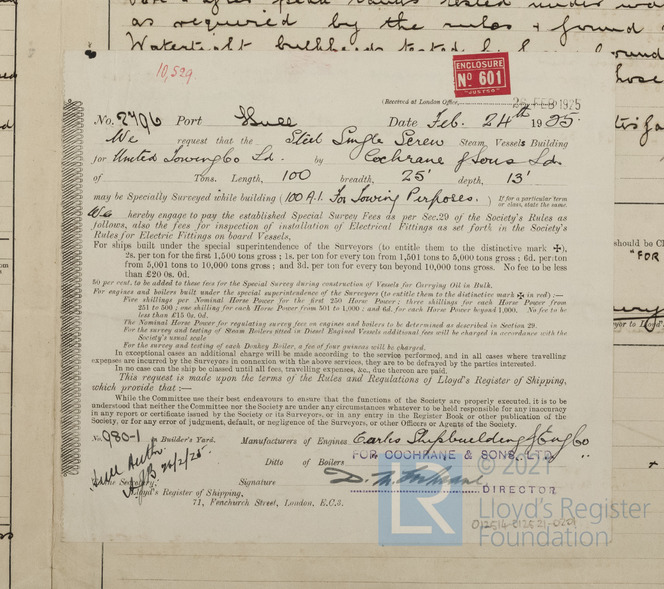 as required by the rules & found
Watertight bulkheads tested by hose found
10,529
ENCLOSURE
No 601
(Received at London Office,
25 FEB 1925
No. 2796 Port Hull Date Feb. 24th 1925
We request that the Steel Single Screw Steam Vessels Building
for United Towing Co Ld. by Cochrane & Sons Ld.
of Tons. Length, 100 breadth, 25' depth, 13'
may be Specially Surveyed while building (100 A.1. For Towing Purposes.) If for a particular term
or class, state the same.
We hereby engage to pay the established Special Survey Fees as per Sec. 29 of the Society's Rules as
follows, also the fees for inspection of installation of Electrical Fittings as set forth in the Society's
Rules for Electric Fittings on board Vessels,
For ships built under the special superintendence of the Surveyors (to entitle them to the distinctive mark ✠),
2s. per ton for the first 1,500 tons gross; 1s. per ton for every ton from 1,501 to 5,000 tons gross; 6d. per ton
from 5,001 to 10,000 tons gross; and 3d. per ton for every ton beyond 10,000 tons gross. No fee to be less
than £20 0s. 0d.
50 per cent. to be added to these fees for the Special Survey during construction of Vessels for Carrying Oil in Bulk.
For engines and boilers built under the special superintendence of the Surveyors (to entitle them to the distinctive mark ✠ in red) :—
Five shillings per Nominal Horse Power for the first 250 Horse Power; three shillings for each Horse Power from
251 to 500; one shilling for each Horse Power from 501 to 1,000; and 6d. for each Horse Power beyond 1,000. No fee to be
less than £15 0s. 0d.
The Nominal Horse Power for regulating survey fees on engines and boilers to be determined as described in Section 29.
For the survey and testing of Steam Boilers fitted in Diesel Engined Vessels additional fees will be charged in accordance with the
Society's usual scale
For the survey and testing of each Donkey Boiler, a fee of four guineas will be charged.
In exceptional cases an additional charge will be made according to the service performed, and in all cases where travelling
expenses are incurred by the Surveyors in connection with the above services, they are to be defrayed by the parties interested.
In no case can the ship be classed until all fees, travelling expenses, &c., due thereon are paid.
This request is made upon the terms of the Rules and Regulations of Lloyd's Register of Shipping,
which provide that :—
While the Committee use their best endeavours to ensure that the functions of the Society are properly executed, it is to be
understood that neither the Committee nor the Society are under any circumstances whatever to be held responsible for any inaccuracy
in any report or certificate issued by the Society or its Surveyors, or in any entry in the Register Book or other publication of the
Society, or for any error of judgment, default, or negligence of the Surveyors, or other Officers or Agents of the Society.
No. 980-1 Builder's Yard. Manufacturers of Engines Earles Shipbuilding & Eng Co
Ditto of Boilers
FOR COCHRANE & SONS, LTD.
The Secretary, Signature
DIRECTOR
Lloyd's Register of Shipping,
71, Fenchurch Street, London, E.C.3.
should be
"FOR
© 2021
LR
Lloyd's Register
Foundation